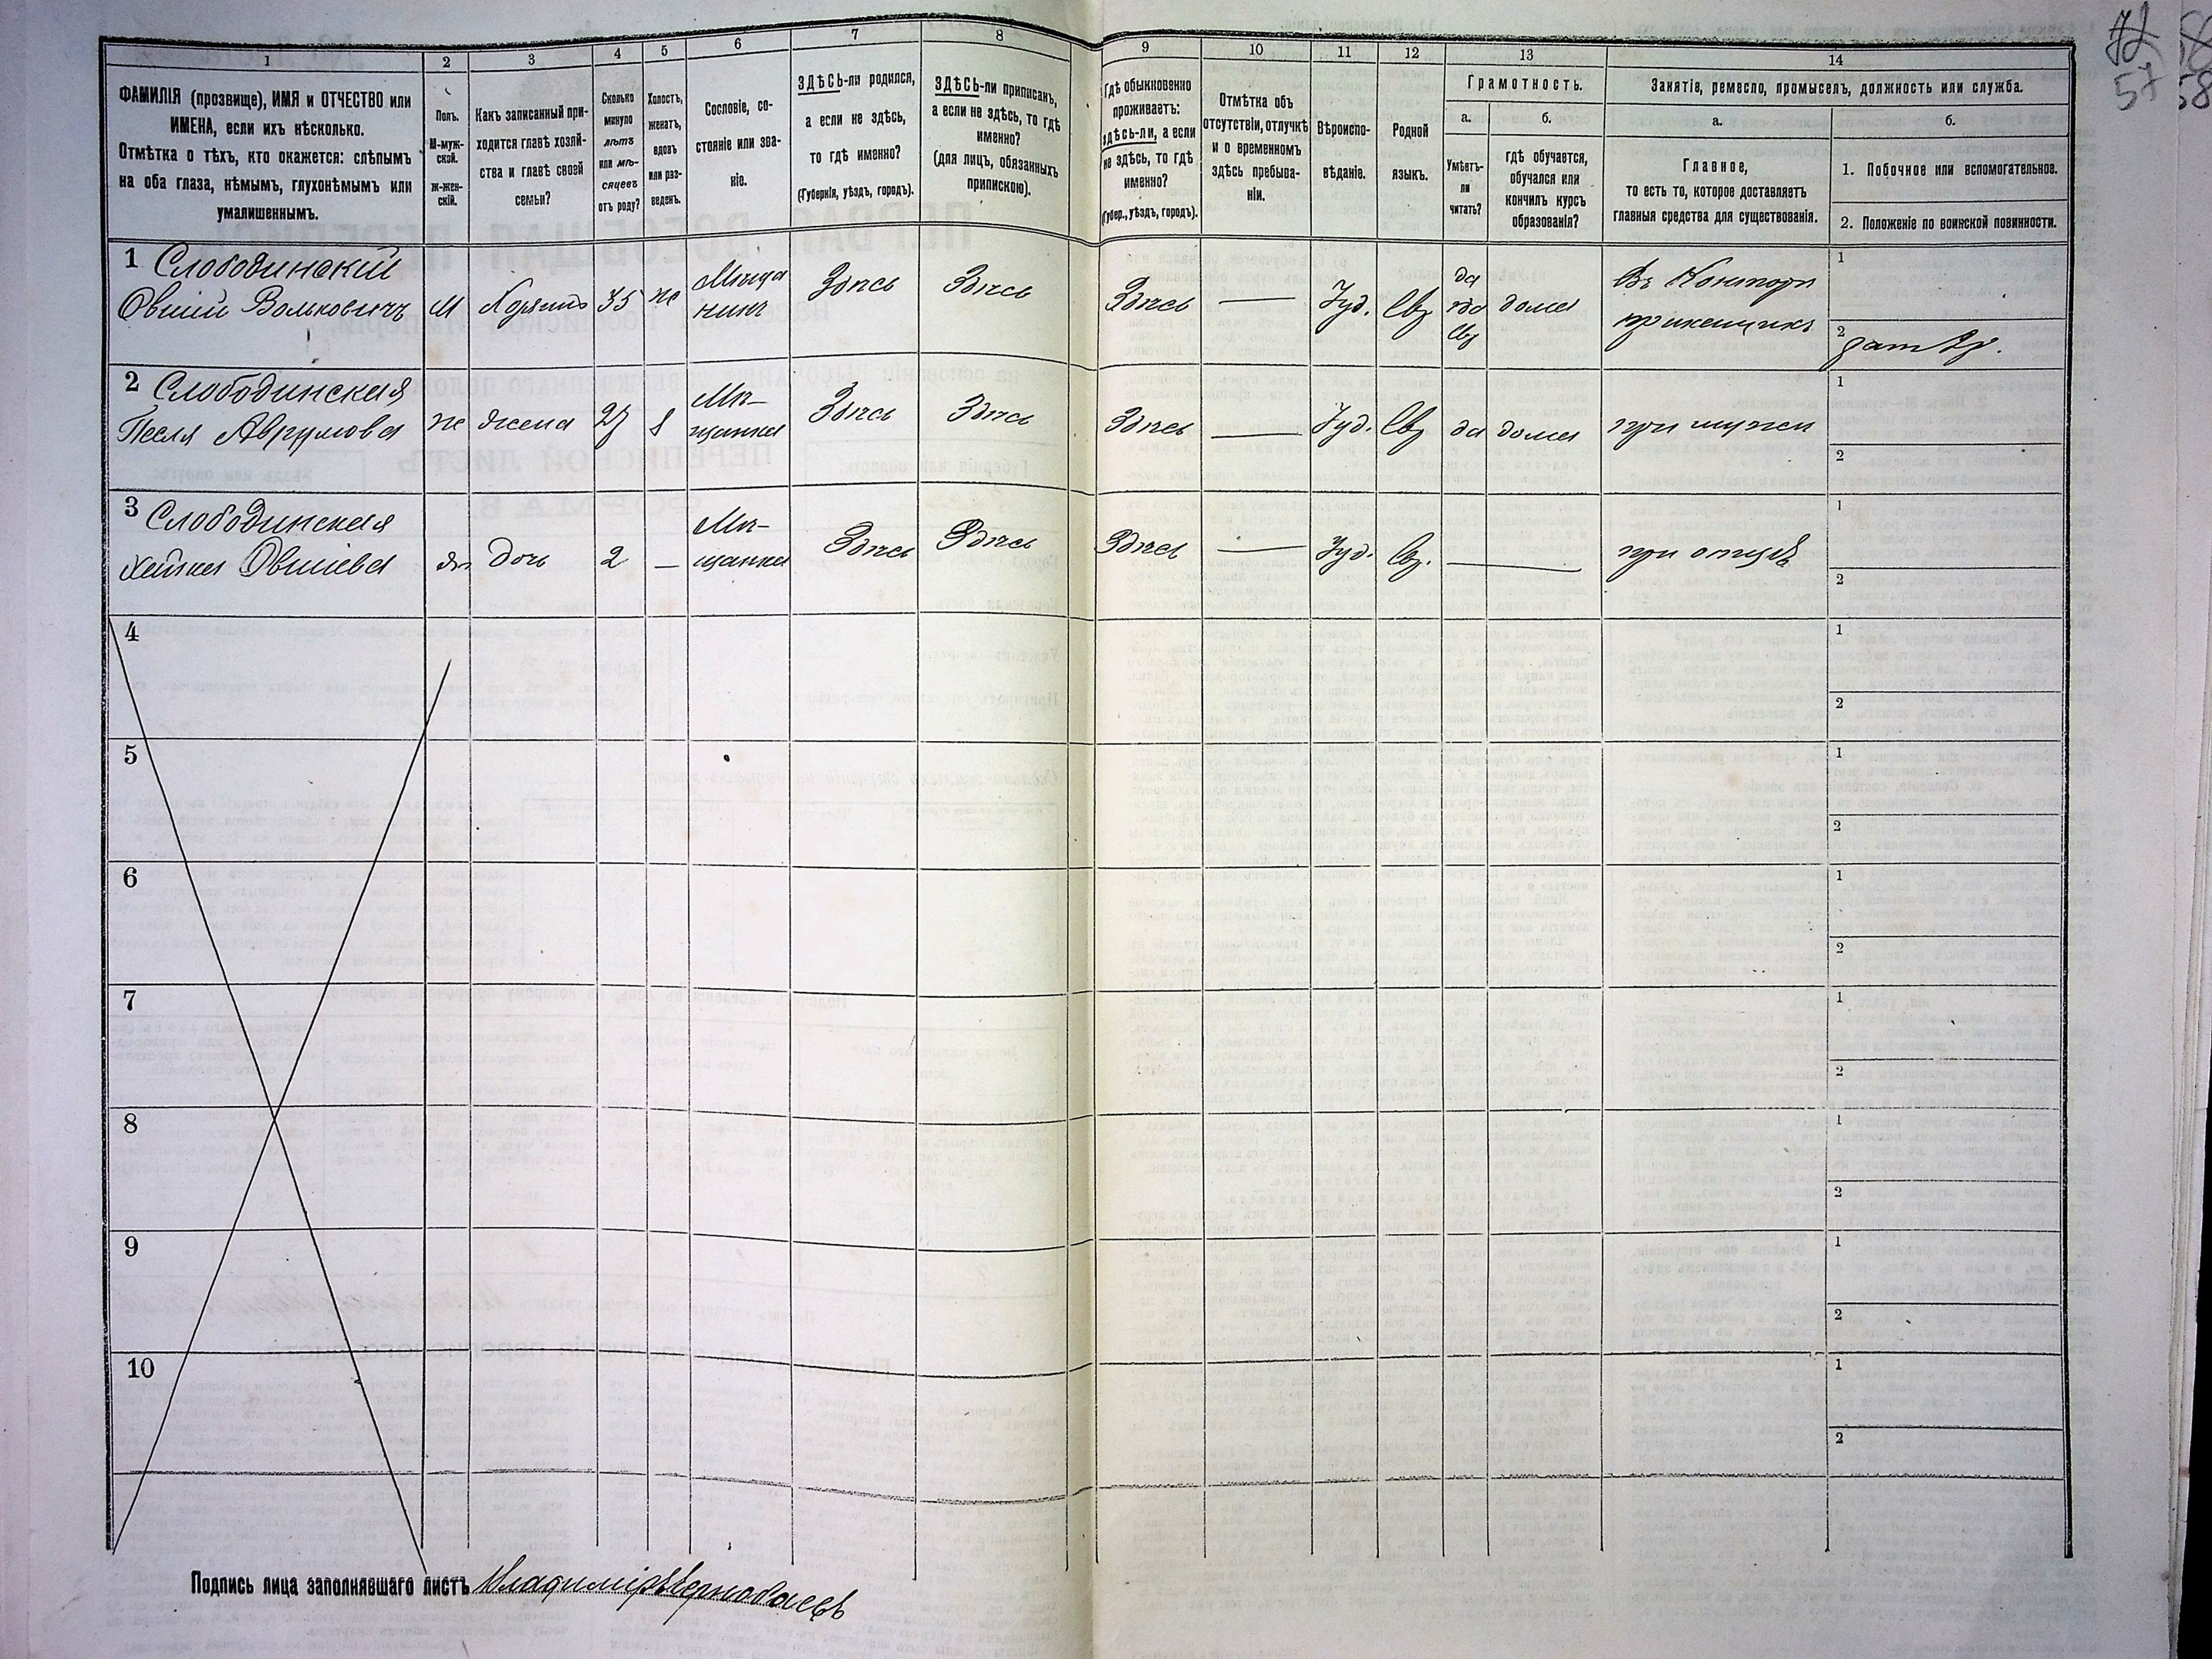 72 58
57 58
1 2 3 4 5 6 7 8 9 10 11 12 13 14
ФАМИЛІЯ (прозвище), ИМЯ и ОТЧЕСТВО или
ИМЕНА, если ихъ нѣсколько.
Отмѣтка о тѣхъ, кто окажется: слѣпымъ
на оба глаза, нѣмымъ, глухонѣмымъ или
умалишеннымъ.
Полъ.
М-муж-
ской.
ж-жен-
скій.
Какъ записанный при-
ходится главѣ хозяй-
ства и главѣ своей
семьи?
Сколько
минуло
лѣтъ
или мѣ-
сяцевъ
отъ роду?
Холостъ,
женатъ,
вдовъ
или раз-
веденъ.
Сословіе, со-
стояніе или зва-
ніе.
ЗДѢСЬ-ли родился,
а если не здѣсь,
то гдѣ именно?
(Губернія, уѣздъ, городъ).
ЗДѢСЬ-ли приписанъ,
а если не здѣсь, то гдѣ
именно?
(для лицъ, обязанныхъ
припискою).
Гдѣ обыкновенно
проживаетъ:
здѣсь-ли, а если
не здѣсь, то гдѣ
именно?
(Губер., уѣздъ, городъ).
Отмѣтка объ
отсутствіи, отлучкѣ
и о временномъ
здѣсь пребыва-
ніи.
Вѣроиспо-
вѣданіе.
Родной
языкъ.
Грамотность.
а.
Умѣетъ-
ли
читать?
б.
гдѣ обучается,
обучался или
кончилъ курсъ
образованія?
Занятіе, ремесло, промыселъ, должность или служба.
а.
Главное,
то есть то, которое доставляетъ
главныя средства для существованія.
б.
1. Побочное или вспомогательное.
2. Положеніе по воинской повинности.
1 Слободинскій
Овшій Вольковичъ М 35 же Мѣща
нинъ Здѣсь Здѣсь Здѣсь — Іуд. Евр да
дома Въ Конторѣ
прикащикъ
1
2
2 Слободинская
Песля Аврумова же жена 27 Мѣ-
щанка Здѣсь Здѣсь Здѣсь — Іуд. Евр да дома при мужѣ
1
2
3 Слободинская
Хейка Овшіева дочь 2 — Мѣ-
щанка Здѣсь Здѣсь Здѣсь — Іуд. Евр. — при отцѣ
1
2
4 1
2
5 1
2
6 1
2
7 1
2
8 1
2
9 1
2
10 1
2
Подпись лица заполнявшаго листъ Владиміръ